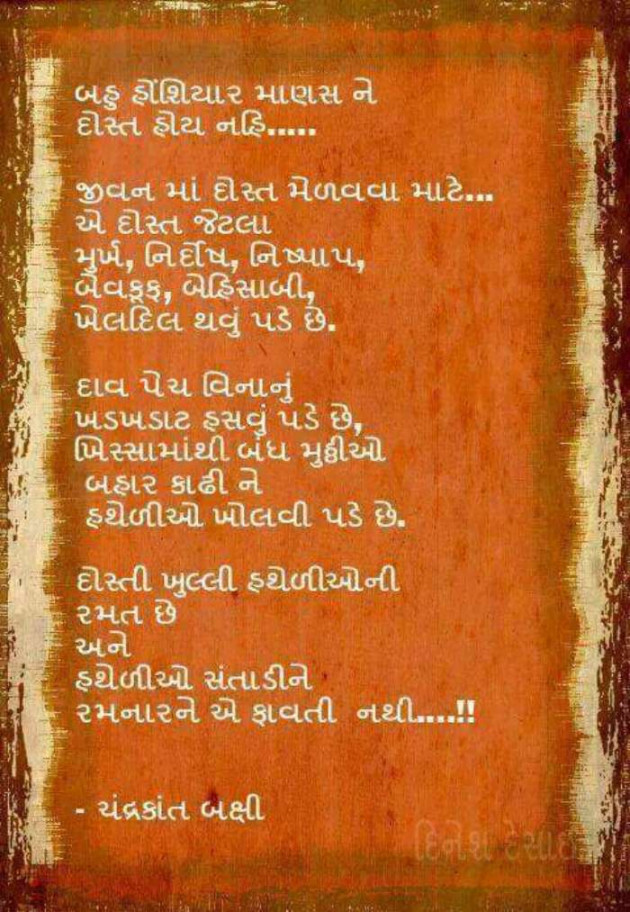 બહુ હોંશિયાર માણસ ને
દોસ્ત હોય નહિ.....
જીવન માં દોસ્ત મેળવવા માટે...
એ દોસ્ત જેટલા
મુર્ખ, નિર્દોષ, નિષ્પાપ,
બેવકૂફ, બેહિસાબી,
ખેલદિલ થવું પડે છે.
દાવ પેચ વિનાનું
ખડખડાટ હસવું પડે છે,
ખિસ્સામાંથી બંધ મુઠ્ઠીઓ
બહાર કાઢી ને
હથેળીઓ ખોલવી પડે છે.
દોસ્તી ખુલ્લી હથેળીઓની
રમત છે
અને
હથેળીઓ સંતાડીને
રમનારને એ ફાવતી નથી....!!
- ચંદ્રકાંત બક્ષી
દિનેશ દેસાઇ